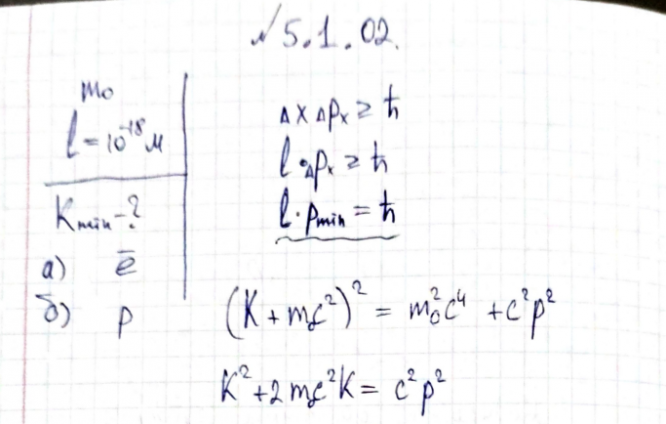 №5.1.02.
m₀
l = 10⁻¹⁸ м
Kmin - ?
а) ē
б) p
Δx Δpₓ ≥ ħ
l·Δpₓ ≥ ħ
l·pmin = ħ
(K + m₀c²)² = m₀²c⁴ + c²p²
K² + 2m₀c²K = c²p²